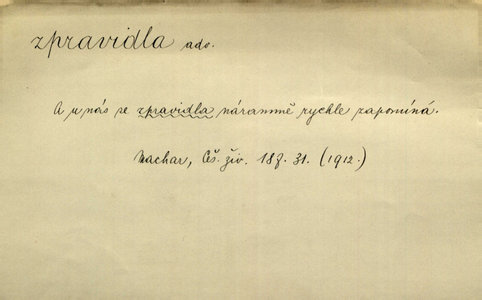 zpravidla adv.
A u nás se zpravidla náramně rychle zapomíná.
Machar, Čes. živ. 31. (1912.)